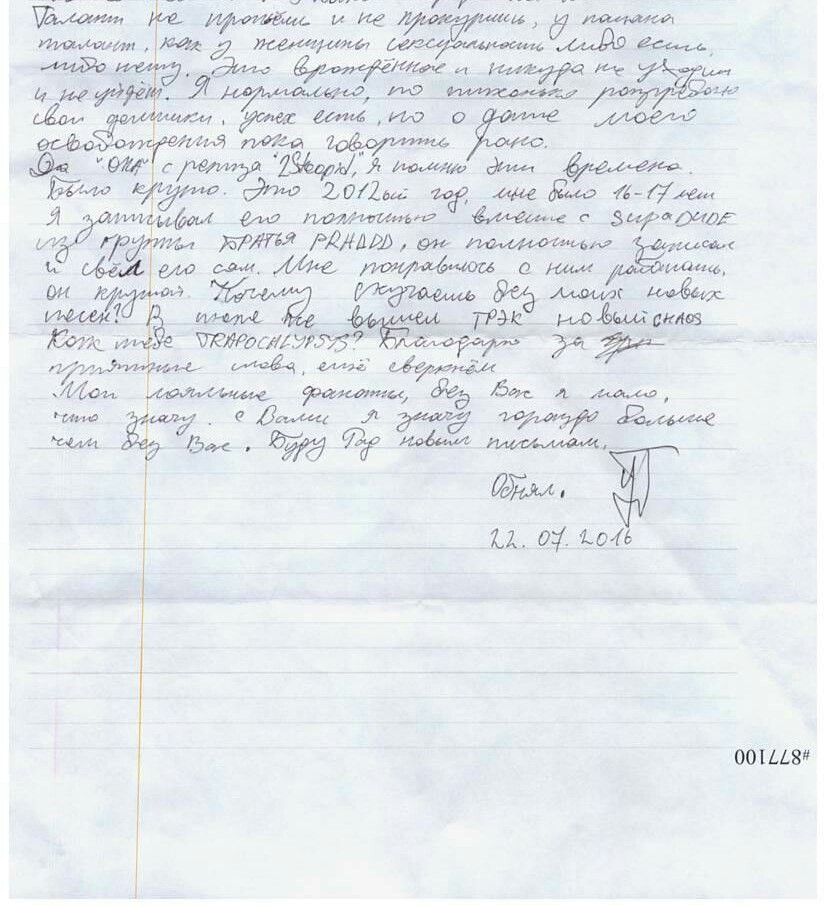 Талант не пропьёшь и не прокуришь, у пацана
талант, как у женщины сексуальность либо есть,
либо нету. Это врождённое и никуда не уходит
и не уйдёт. Я нормально, по тихоньку разгребаю
свои делишки, успех есть, но о дате моего
освобождения пока говорить рано.
Да "ОНА" с релиза я помню эти времена.
Было круто. Это 2012ый год, мне было 16-17 лет
Я записывал его полностью вместе с SUPADUDE
из группы БРАТЬЯ PRHDDD, он полностью записал
и свёл его сам. Мне понравилось с ним работать,
он крутой. Почему скучаешь без моих новых
песен? В июле же вышел ТРЭК новый CHAOS
Как тебе TRAPOCALYPSYS? Благодарю за
приятные слова, ещё сверкнём
Мои лояльные фанаты, без Вас я мало,
что значу. с Вами я значу гораздо больше
чем без Вас. Буду Рад новым письмам.
Обнял.
22.07.2016
#877100